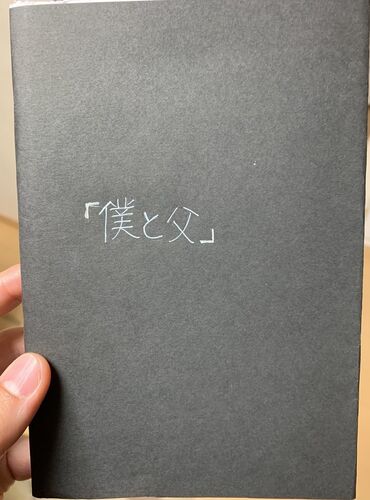 「僕と父」